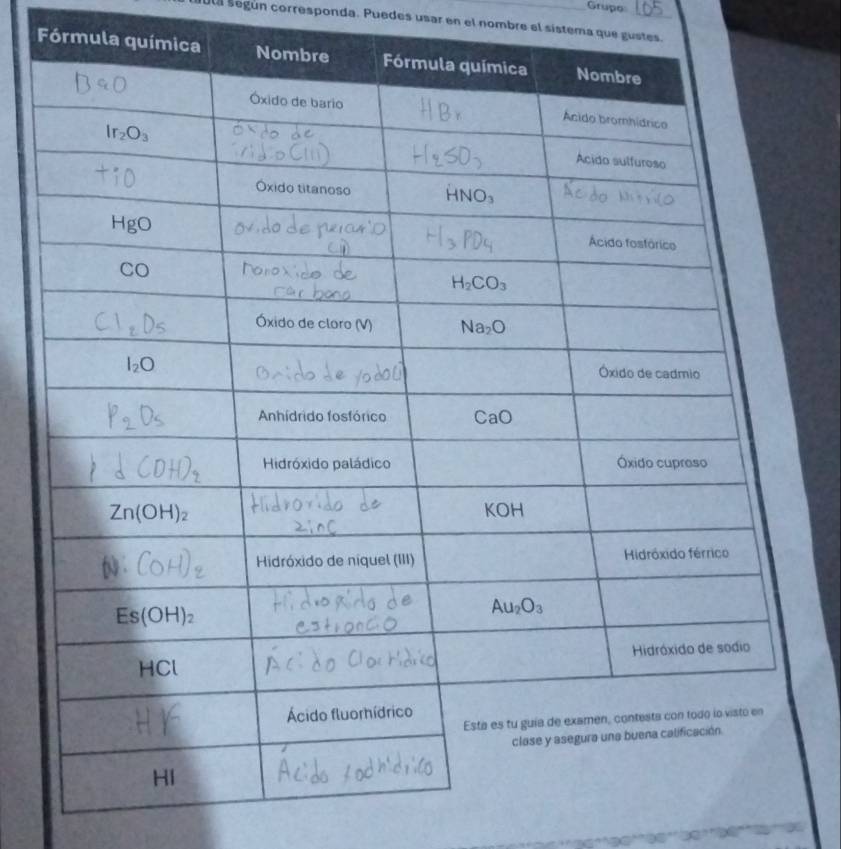 Grupo: 105
según corresponda. Puedes usar en el nombre el sistema que gustes.
Fórmula química Nombre Fórmula química Nombre
BaO Óxido de bario HBr Ácido bromhídrico
Ir₂O₃ óxido de iridio (III) H₂SO₃ Ácido sulfuroso
tiO Óxido titanoso HNO₃ Ácido Nitrico
HgO H₃PO₄ Ácido fosfórico
CO de carbono H₂CO₃
Cl₂O₅ Óxido de cloro (V) Na₂O
I₂O Óxido de cadmio
P₂O₅ Anhídrido fosfórico CaO
pd(OH)₂ Hidróxido paládico Óxido cuproso
Zn(OH)₂ Hidroxido de zinc KOH
Ni(OH)₂ Hidróxido de níquel (III) Hidróxido férrico
Es(OH)₂ Hidroxido de estroncio Au₂O₃
HCl Ácido Clorhidrico Hidróxido de sodio
HF Ácido fluorhídrico
HI Ácido
Esta es tu guía de examen, contesta con todo lo visto en
clase y asegura una buena calificación.